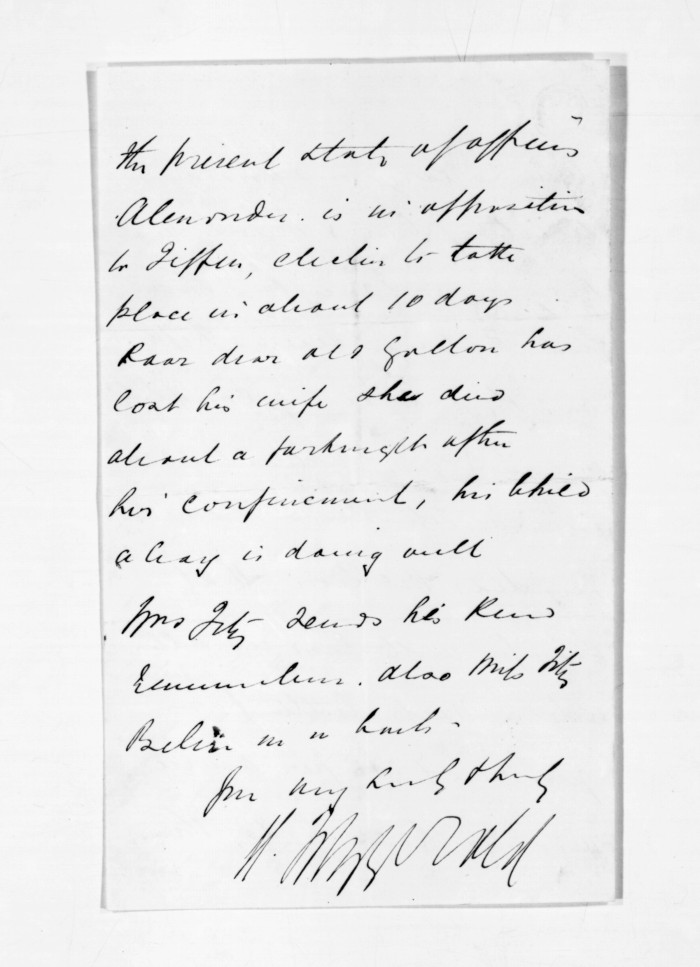 the present state of affairs
Alexander. is in opposition
to Tiffen, election to take
place in about 10 days
Poor dear old Gollan has
lost his wife she died
about a fortnight after
her confinement, his child
a boy is doing well
Mrs Fitz sends her kind
remembrances. also Miss Fitz
Believe me in haste
yrs very truly
H. Fitzgerald